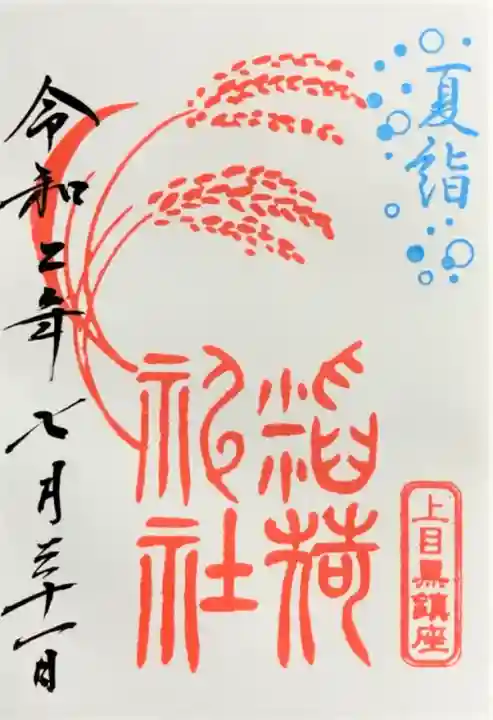 夏詣
上目黒鎮座
稲荷
神社
令和二年七月三十一日